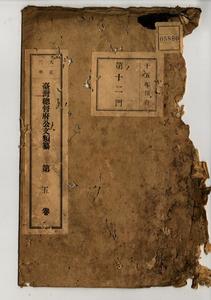 05880
十五年保存
第十二門
大正
臺灣總督府公文類纂 第五卷